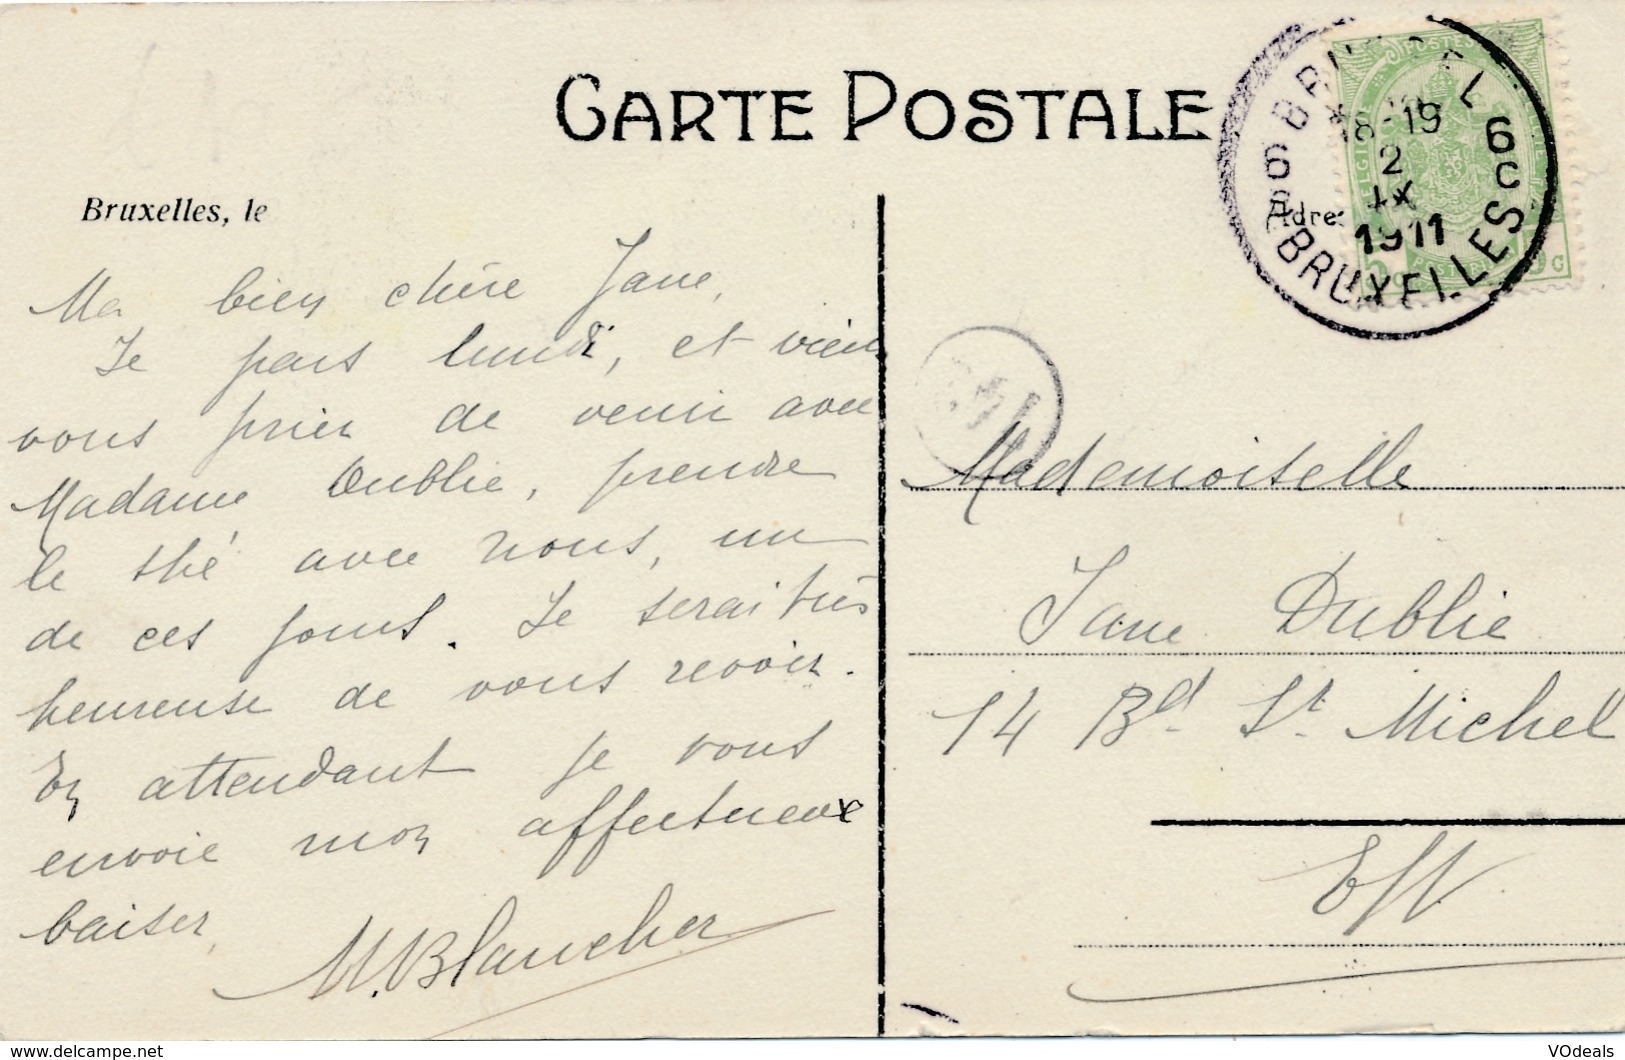 CARTE POSTALE
Bruxelles, le
Ma bien chère Jane,
Je pars lundi, et viens
vous prier de venir avec
Madame Dublie, prendre
le thé avec nous, un
de ces jours. Je serai très
heureuse de vous revoir.
En attendant je vous
envoie mon affectueux
baiser,
M. Blancher
BRUSSEL
6
18-19
2
IX
1911
6C
BRUXELLES
Adre
Mademoiselle
Jane Dublie
14 Bd. St. Michel
E/V.
http://www.delcampe.net
VOdeals